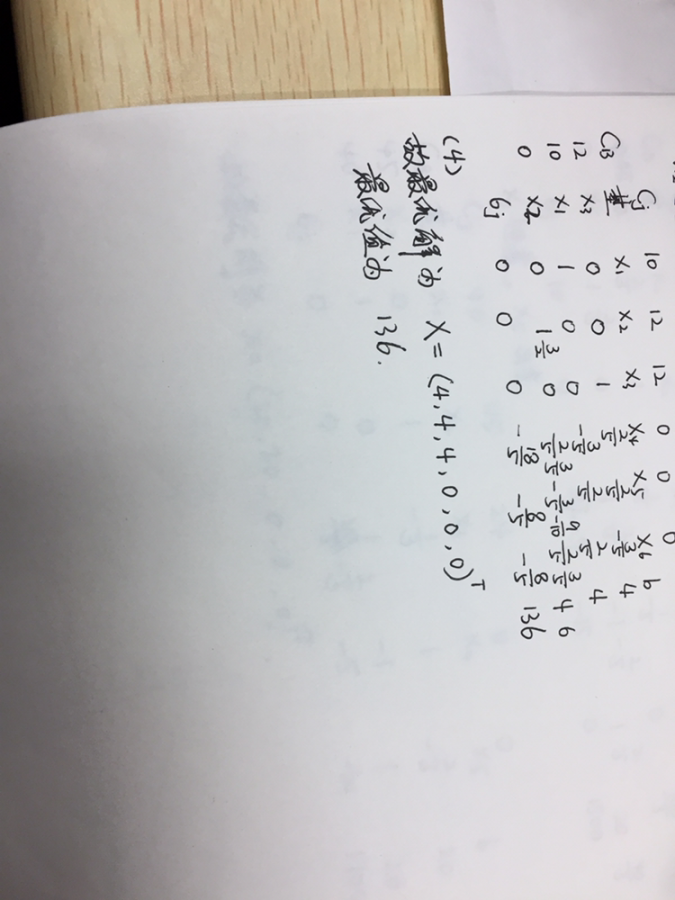 Cj 10 12 12 0 0 0
CB 基 x₁ x₂ x₃ x₄ x₅ x₆ b
12 x₃ 0 0 1 2/5 2/5 -3/5 4
10 x₁ 1 0 0 -3/5 2/5 2/5 4
0 x₂ 0 1 3/2 0 2/5 3/5 -3/5 -9/10 2/5 3/5 4 6
6j 0 0 0 -18/5 -8/5 -8/5 136
(4)
故最优解为 X=(4,4,4,0,0,0)ᵀ
最优值为 136.